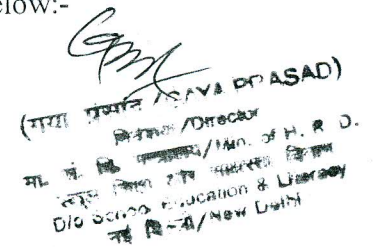 elow:-
(गया प्रसाद /GAYA PRASAD)
निदेशक /Director
मा. सं. वि. मन्त्रालय/Min. of H. R. D.
स्कूल शिक्षा और साक्षरता विभाग
D/o School Education & Literacy
नई दिल्ली/New Delhi